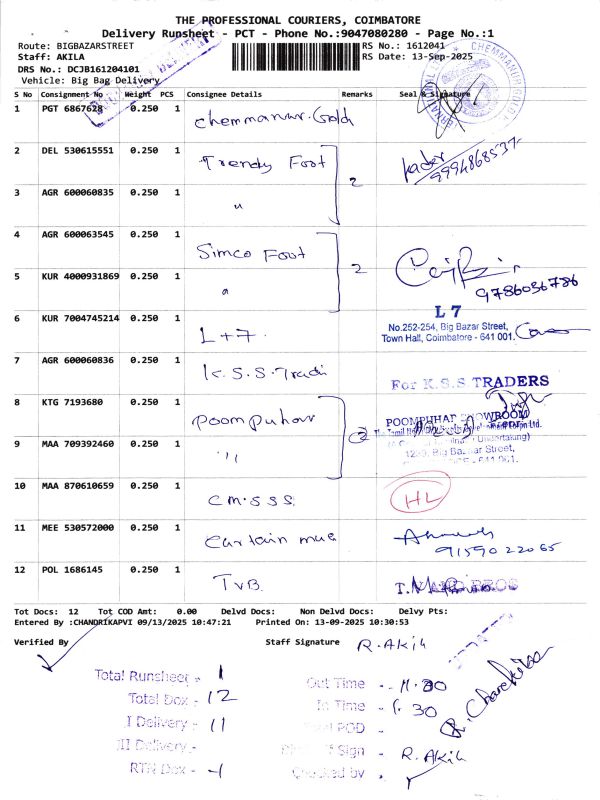 THE PROFESSIONAL COURIERS, COIMBATORE
Delivery Runsheet - PCT - Phone No.:9047080280 - Page No.:1
Route: BIGBAZARSTREET
RS No.: 1612041
Staff: AKILA
RS Date: 13-Sep-2025
DRS No.: DCJB161204101
Vehicle: Big Bag Delivery
S No Consignment No Weight PCS Consignee Details Remarks Seal & Signature
1 PGT 6867628 0.250 1 Chemmanur.Gold
2 DEL 530615551 0.250 1 Trendy Foot 2 Kader
9994868537
3 AGR 600060835 0.250 1 "
4 AGR 600063545 0.250 1 Simco Foot 2
5 KUR 4000931869 0.250 1 " 9786036786
6 KUR 7004745214 0.250 1 L+7.
L 7
No.252-254, Big Bazar Street,
Town Hall, Coimbatore - 641 001.
7 AGR 600060836 0.250 1 K.S.S. Tradi
For K.S.S TRADERS
8 KTG 7193680 0.250 1 Poompuhar 2
POOMPUHAR SHOWROOM
9 MAA 709392460 0.250 1 "
Big Bazaar Street,
10 MAA 870610659 0.250 1 CM.SSS HL
11 MEE 530572000 0.250 1 Curtain mag
9159022065
12 POL 1686145 0.250 1 TVB.
Tot Docs: 12 Tot COD Amt: 0.00 Delvd Docs: Non Delvd Docs: Delvy Pts:
Entered By :CHANDRIKAPVI 09/13/2025 10:47:21 Printed On: 13-09-2025 10:30:53
Verified By Staff Signature R.Akila
Total Runsheet - 1
Out Time - 11.30
Total Dox - 12
In Time - 1.30
I Delivery - 11
Total POD -
III Delivery -
Sign - R. Akila
RTN Dox - 1
Checked by -